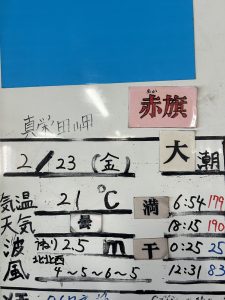 真栄田岬
あか
赤旗
2/23(金)
大潮
気温 21℃
天気 曇
波 うねり 2.5m
風 北北西 4~5~6~5
満 6:54 179
18:15 190
干 0:25 25
12:31 83